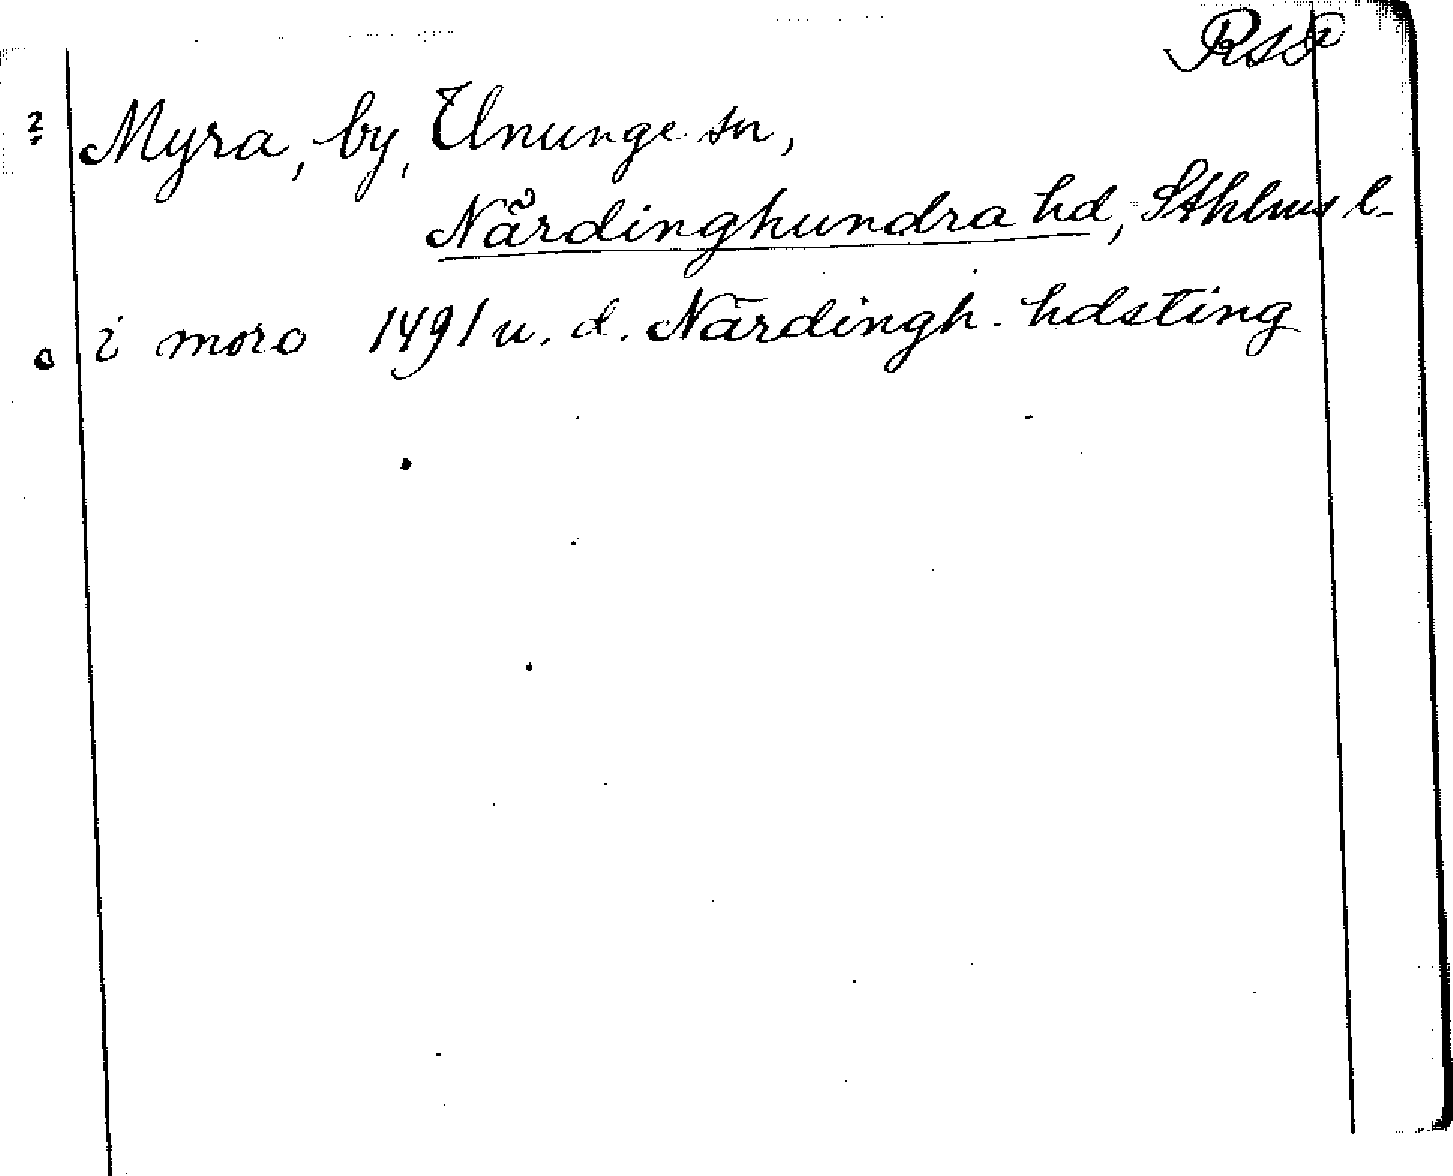 Myra, by, Ununge sn,
Närdinghundra hd, Sthlms l.
i moro 1491 u. d. Närdingh. hdsting